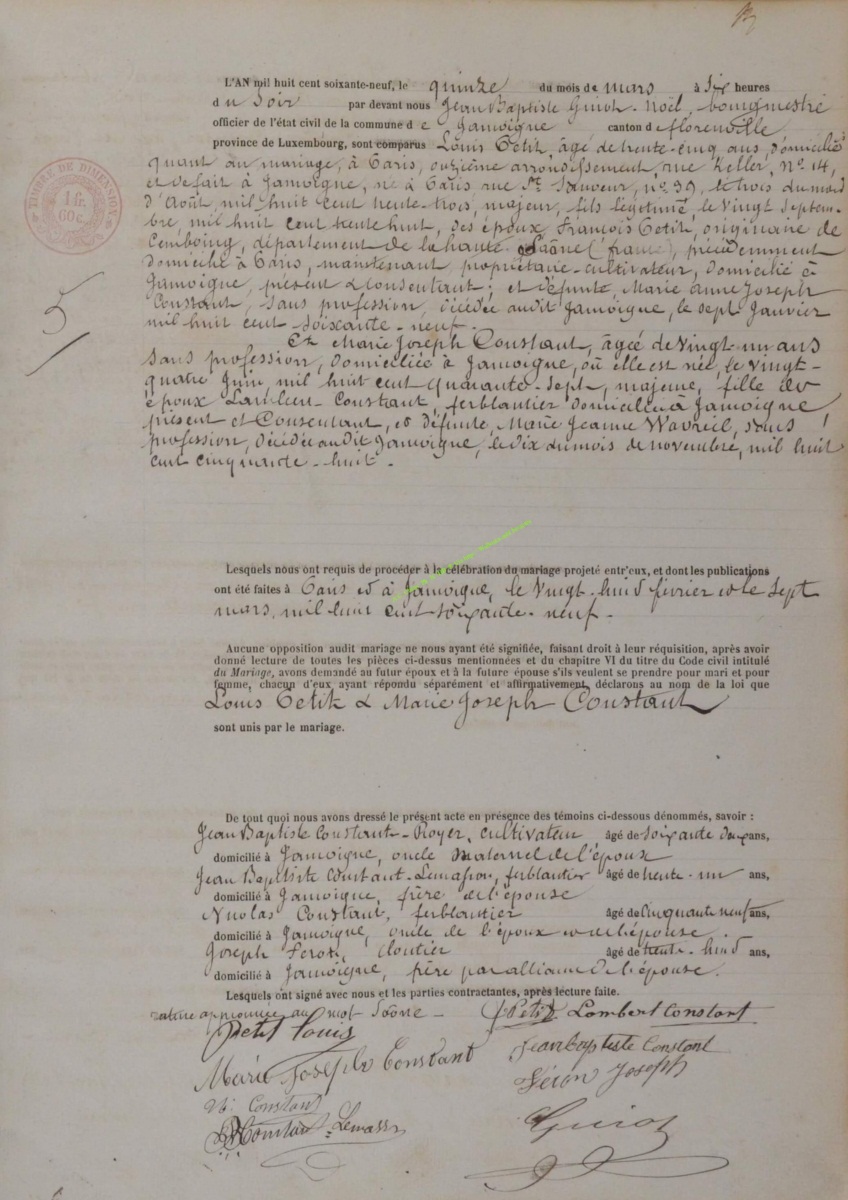 TIMBRE DE DIMENSION
1 fr.
60 c.
5
L'AN mil huit cent soixante-neuf, le quinze du mois de mars à six heures
du soir par devant nous Jean Baptiste Guiot-Noël, bourgmestre
officier de l'état civil de la commune de Jamoigne canton de florenville
province de Luxembourg, sont comparus Louis Petit, âgé de trente-cinq ans, domicilié
quant au mariage, à Paris, onzième arrondissement, rue Keller, No 14,
et de fait à Jamoigne, né à Paris, rue St Sauveur, no 39, le trois du mois
d'Août, mil huit cent trente-trois, majeur, fils légitimé, le vingt septem-
bre, mil huit cent trente huit, des époux François Petit, originaire de
Cemboing, département de la haute Saône (france), précédemment
domicilié à Paris, maintenant propriétaire-cultivateur, domicilié à
Jamoigne, présent & consentant; et défunte, Marie Anne Joseph
Constant, sans profession, décédée audit Jamoigne, le sept Janvier
mil huit cent soixante-neuf.
Et Marie Joseph Constant, âgée de vingt-un ans
sans profession, domiciliée à Jamoigne, où elle est née, le vingt-
quatre Juin, mil huit cent quarante-sept, majeure, fille des
époux Lambert Constant, ferblantier domicilié à Jamoigne,
présent et Consentant, et défunte, Marie Jeanne Wavreil, sans
profession, décédée audit Jamoigne, le dix du mois de novembre, mil huit
cent cinquante-huit.
Lesquels nous ont requis de procéder à la célébration du mariage projeté entr'eux, et dont les publications
ont été faites à Paris et à Jamoigne, le vingt-huit février et le sept
mars, mil huit cent soixante-neuf.
Aucune opposition audit mariage ne nous ayant été signifiée, faisant droit à leur réquisition, après avoir
donné lecture de toutes les pièces ci-dessus mentionnées et du chapitre VI du titre du Code civil intitulé
du Mariage, avons demandé au futur époux et à la future épouse s'ils veulent se prendre pour mari et pour
femme, chacun d'eux ayant répondu séparément et affirmativement, déclarons au nom de la loi que
Louis Petit & Marie Joseph Constant
sont unis par le mariage.
De tout quoi nous avons dressé le présent acte en présence des témoins ci-dessous dénommés, savoir :
Jean Baptiste Constant-Royer, cultivateur âgé de soixante deux ans,
domicilié à Jamoigne, oncle maternel de l'époux
Jean Baptiste Constant-Lemasson, ferblantier âgé de trente-un ans,
domicilié à Jamoigne, frère de l'épouse
Nicolas Constant, ferblantier âgé de Cinquante neuf ans,
domicilié à Jamoigne, oncle de l'époux et de l'épouse.
Joseph Feron, Cloutier âgé de trente-huit ans,
domicilié à Jamoigne, frère par alliance de l'épouse.
Lesquels ont signé avec nous et les parties contractantes, après lecture faite.
rature approuvée au mot Saône.
f Petit Lambert Constant
Petit louis
Jean baptiste Constant
Marie Joseph Constant
Féron Joseph
Ni. Constant
Constant-Lemasson
Guiot